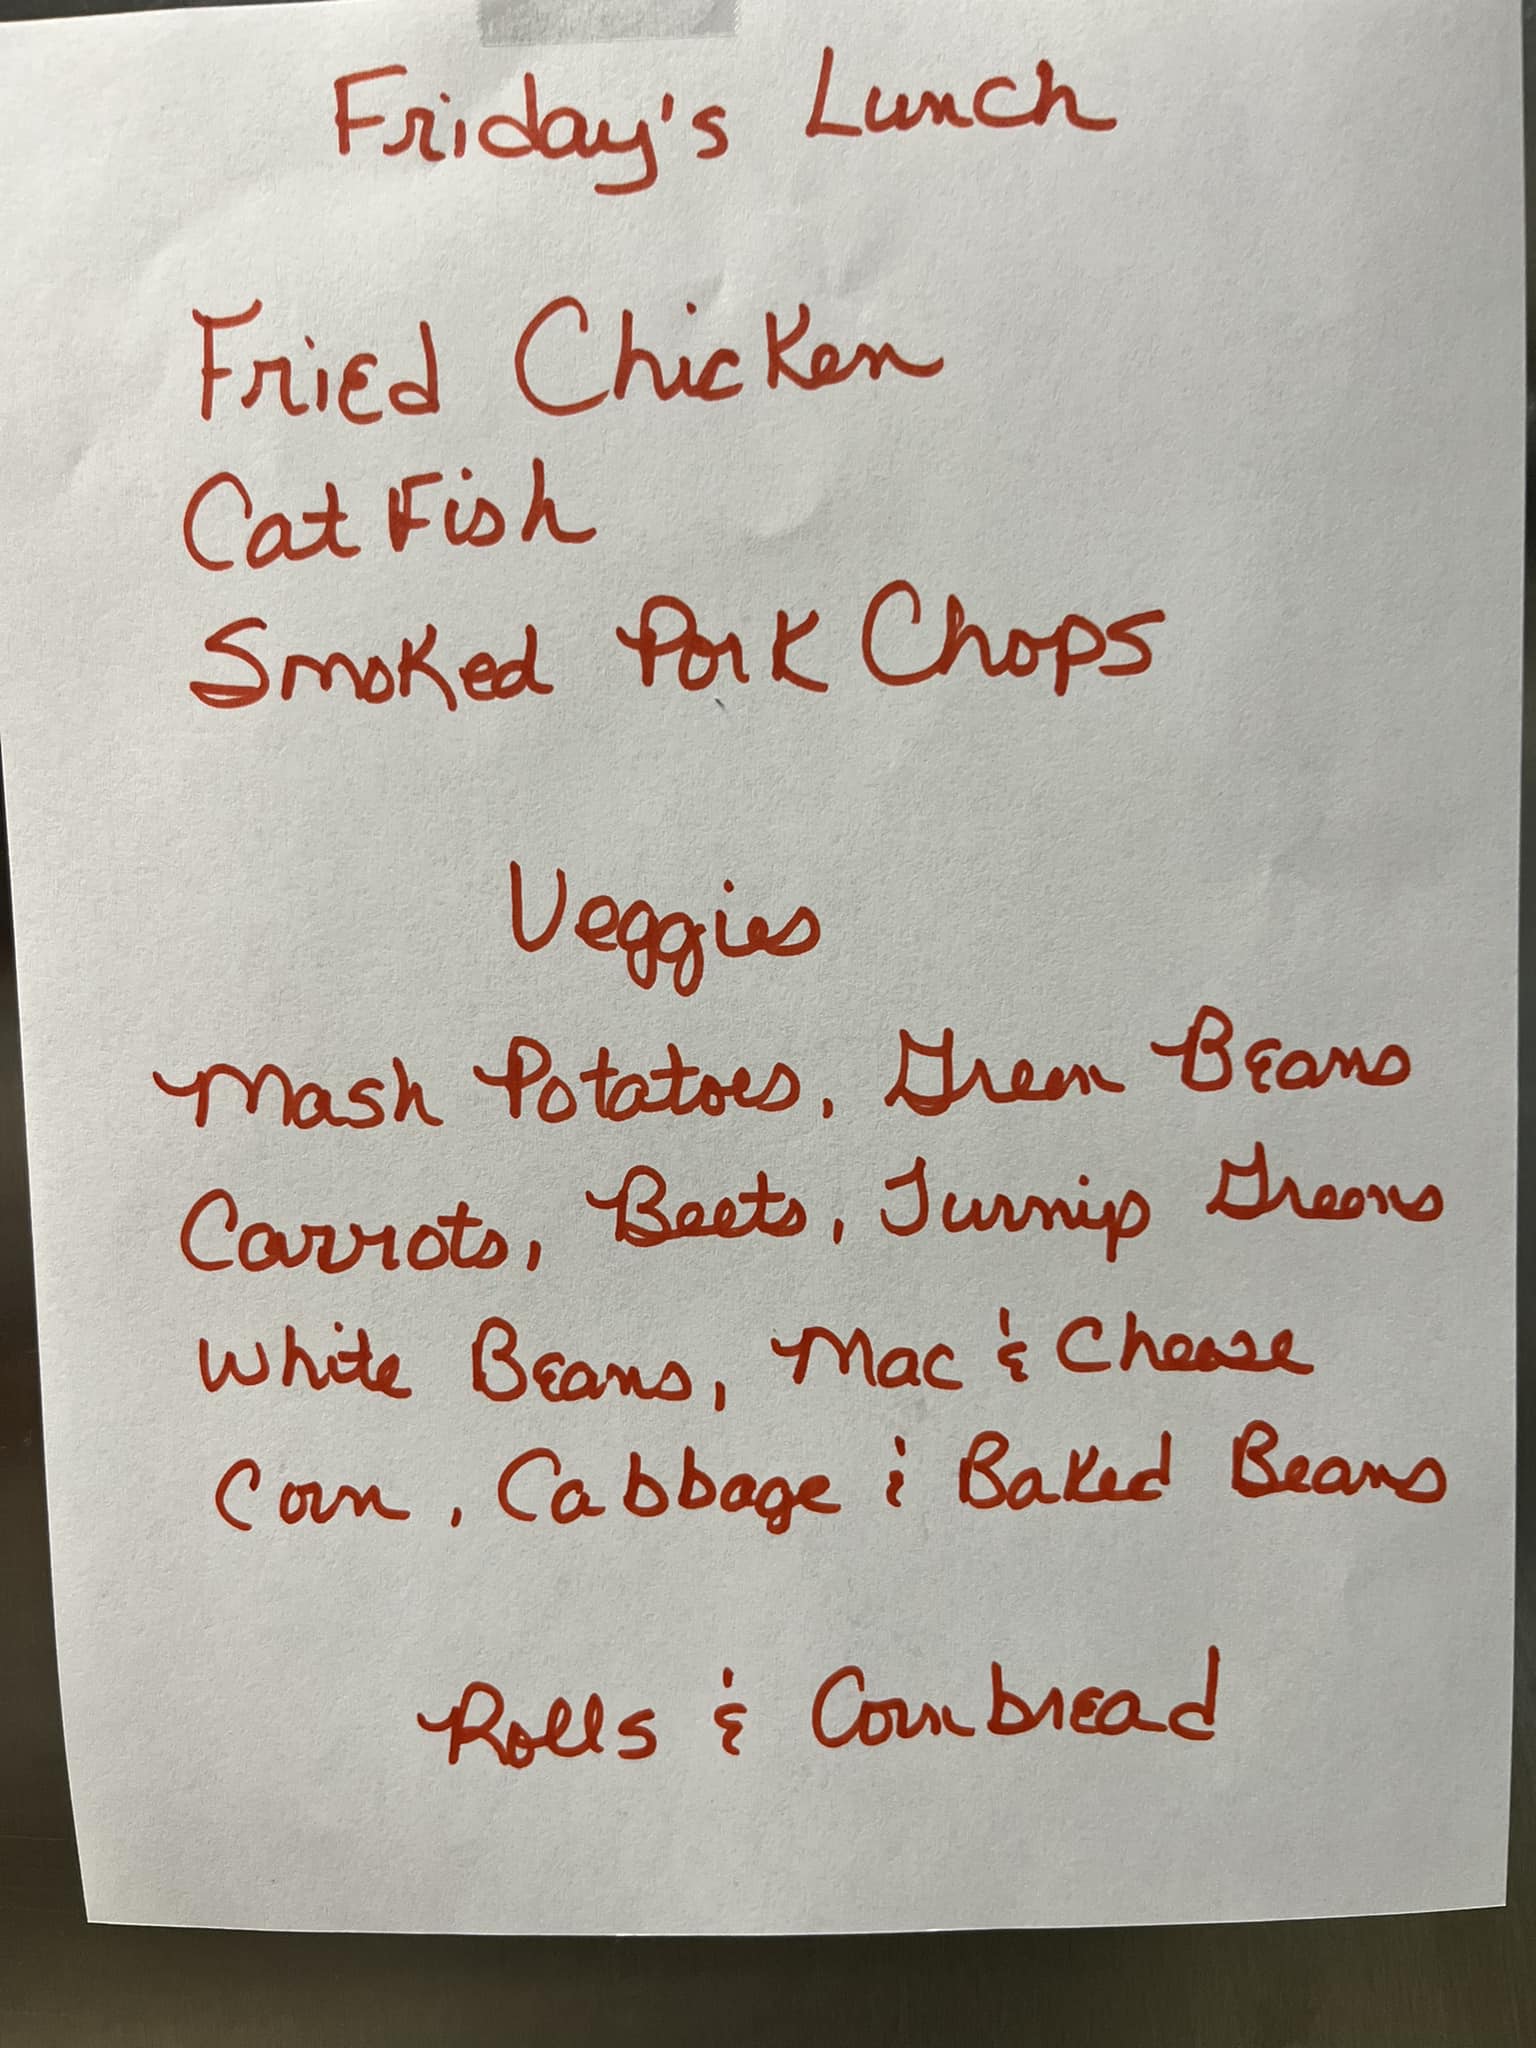 Friday's Lunch
Fried Chicken
Cat Fish
Smoked Pork Chops
Veggies
Mash Potatoes, Green Beans
Carrots, Beets, Turnip Greens
White Beans, Mac & Cheese
Corn, Cabbage & Baked Beans
Rolls & Cornbread